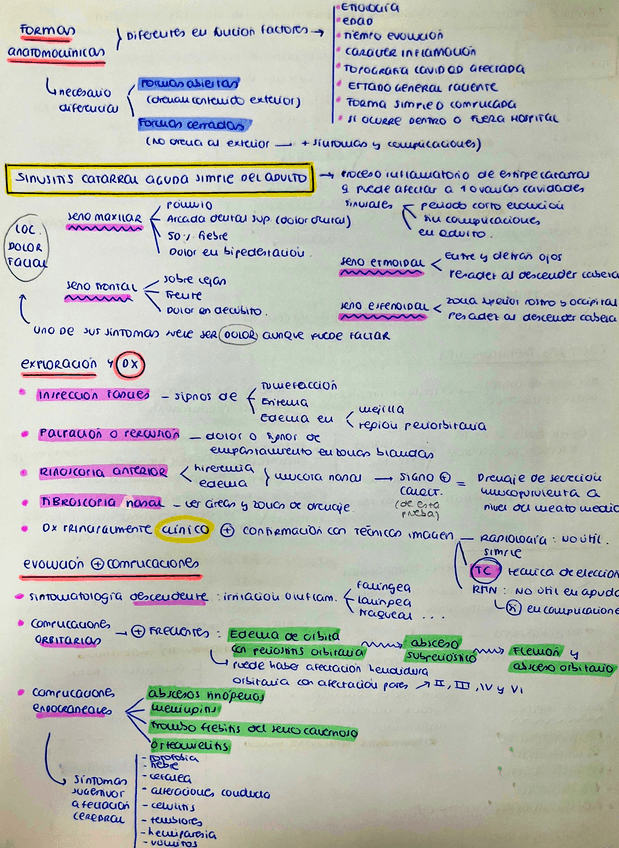 FORMAS ANATOMOCLÍNICAS } DIFERENTES EN FUNCIÓN FACTORES →
• ETIOLOGÍA
• EDAD
• TIEMPO EVOLUCIÓN
• CARÁCTER INFLAMACIÓN
• TOPOGRAFÍA CAVIDAD AFECTADA
• ESTADO GENERAL PACIENTE
• FORMA SIMPLE O COMPLICADA
• SI OCURRE DENTRO O FUERA HOSPITAL
necesario diferenciar
Formas abiertas
(drenan contenido exterior)
Formas cerradas
(NO drena al exterior — + síntomas y complicaciones)
SINUSITIS CATARRAL AGUDA SIMPLE DEL ADULTO → Proceso inflamatorio de estirpe catarral
q puede afectar a 1 o varias cavidades
sinusales
periodo corto evolución
sin complicaciones
en adulto.
LOC. DOLOR FACIAL
seno maxilar
pómulo
Arcada dental sup (dolor dental)
50% fiebre
Dolor en bipedestación.
seno frontal
sobre cejas
Frente
Dolor en decúbito.
seno etmoidal
entre y detrás ojos
pesadez al descender cabeza
seno esfenoidal
zona superior rostro y occipital
pesadez al descender cabeza
UNO DE SUS SÍNTOMAS SUELE SER DOLOR AUNQUE PUEDE FALTAR
EXPLORACIÓN Y DX
• Inspección fauces – signos de
Tumefacción
Eritema
Edema en
mejilla
región periorbitaria
• Palpación o percusión – dolor o signos de
empastamiento en zonas blandas
• Rinoscopia anterior
hiperemia
edema
} mucosa nasal → SIGNO ⊕ caract. (de esta prueba) = Drenaje de secreción
mucopurulenta a
nivel del meato medio
• Fibroscopia nasal – ver áreas y zonas de drenaje.
• DX principalmente clínico ⊕ confirmación con técnicas imagen
Radiología: NO útil.
simple
TC técnica de elección
RMN: NO útil en aguda
en complicaciones
EVOLUCIÓN ⊕ COMPLICACIONES
• sintomatología descendente: irritación o inflam.
faríngea
laríngea
traqueal ...
• complicaciones ORBITARIAS → ⊕ FRECUENTES: Edema de órbita
con periostitis orbitaria
absceso
subperióstico
Flemón y
absceso orbitario
puede haber afectación hendidura
orbitaria con afectación pares → II, III, IV y VI
• complicaciones endocraneales
abscesos
meningitis
trombo flebitis del seno cavernoso
Osteomielitis
SÍNTOMAS SUGESTIVOS AFECTACIÓN CEREBRAL
- fotofobia
- fiebre
- cefalea
- alteraciones conducta
- celulitis
- temblores
- hemiparesia
- vómitos